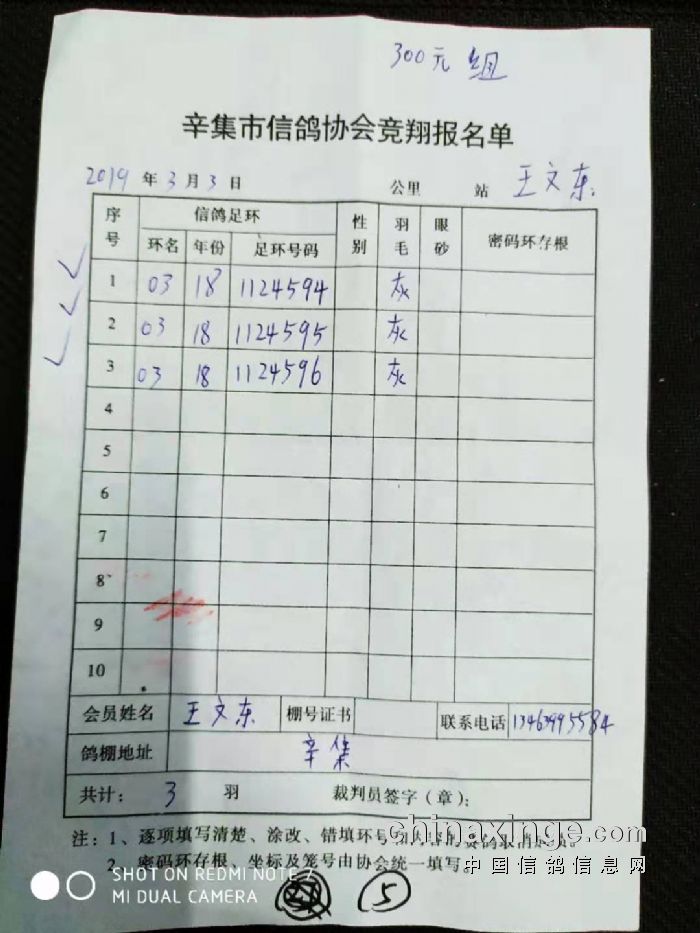 300元 组
辛集市信鸽协会竞翔报名单
2019 年 3 月 3 日 公里 站 王文东
序号 信鸽足环 性别 羽毛 眼砂 密码环存根
环名 年份 足环号码
1 03 18 1124594 灰
2 03 18 1124595 灰
3 03 18 1124596 灰
4
5
6
7
8
9
10
会员姓名 王文东 棚号证书 联系电话 13463995584
鸽棚地址 辛集
共计： 3 羽 裁判员签字（章）：
注：1、逐项填写清楚、涂改、错填环号
2、密码环存根、坐标及笼号由协会统一填写。
chinaxinge.com
中国信鸽信息网
SHOT ON REDMI NOTE 7
MI DUAL CAMERA
5